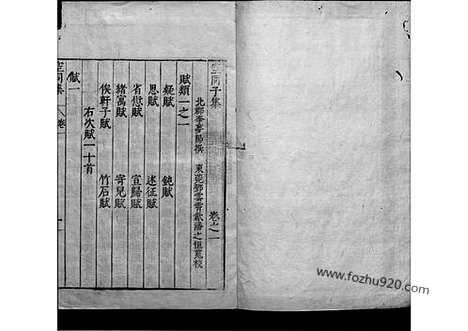 空同子集 卷之一
北郡李夢陽撰 東莞鄧雲霄 潘之恒 校
賦類一之一
疑賦 鈍賦
思賦 述征賦
省愆賦 宣歸賦
緒寓賦 寄兒賦
俟軒子賦 竹石賦
右次賦一十首
賦一
空同集 卷一
www.fozhu920.com